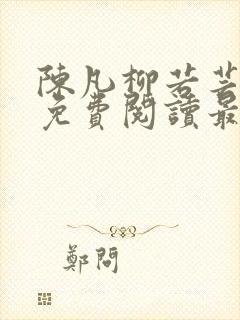 陳凡柳若芸
免費閱讀最
鄭問